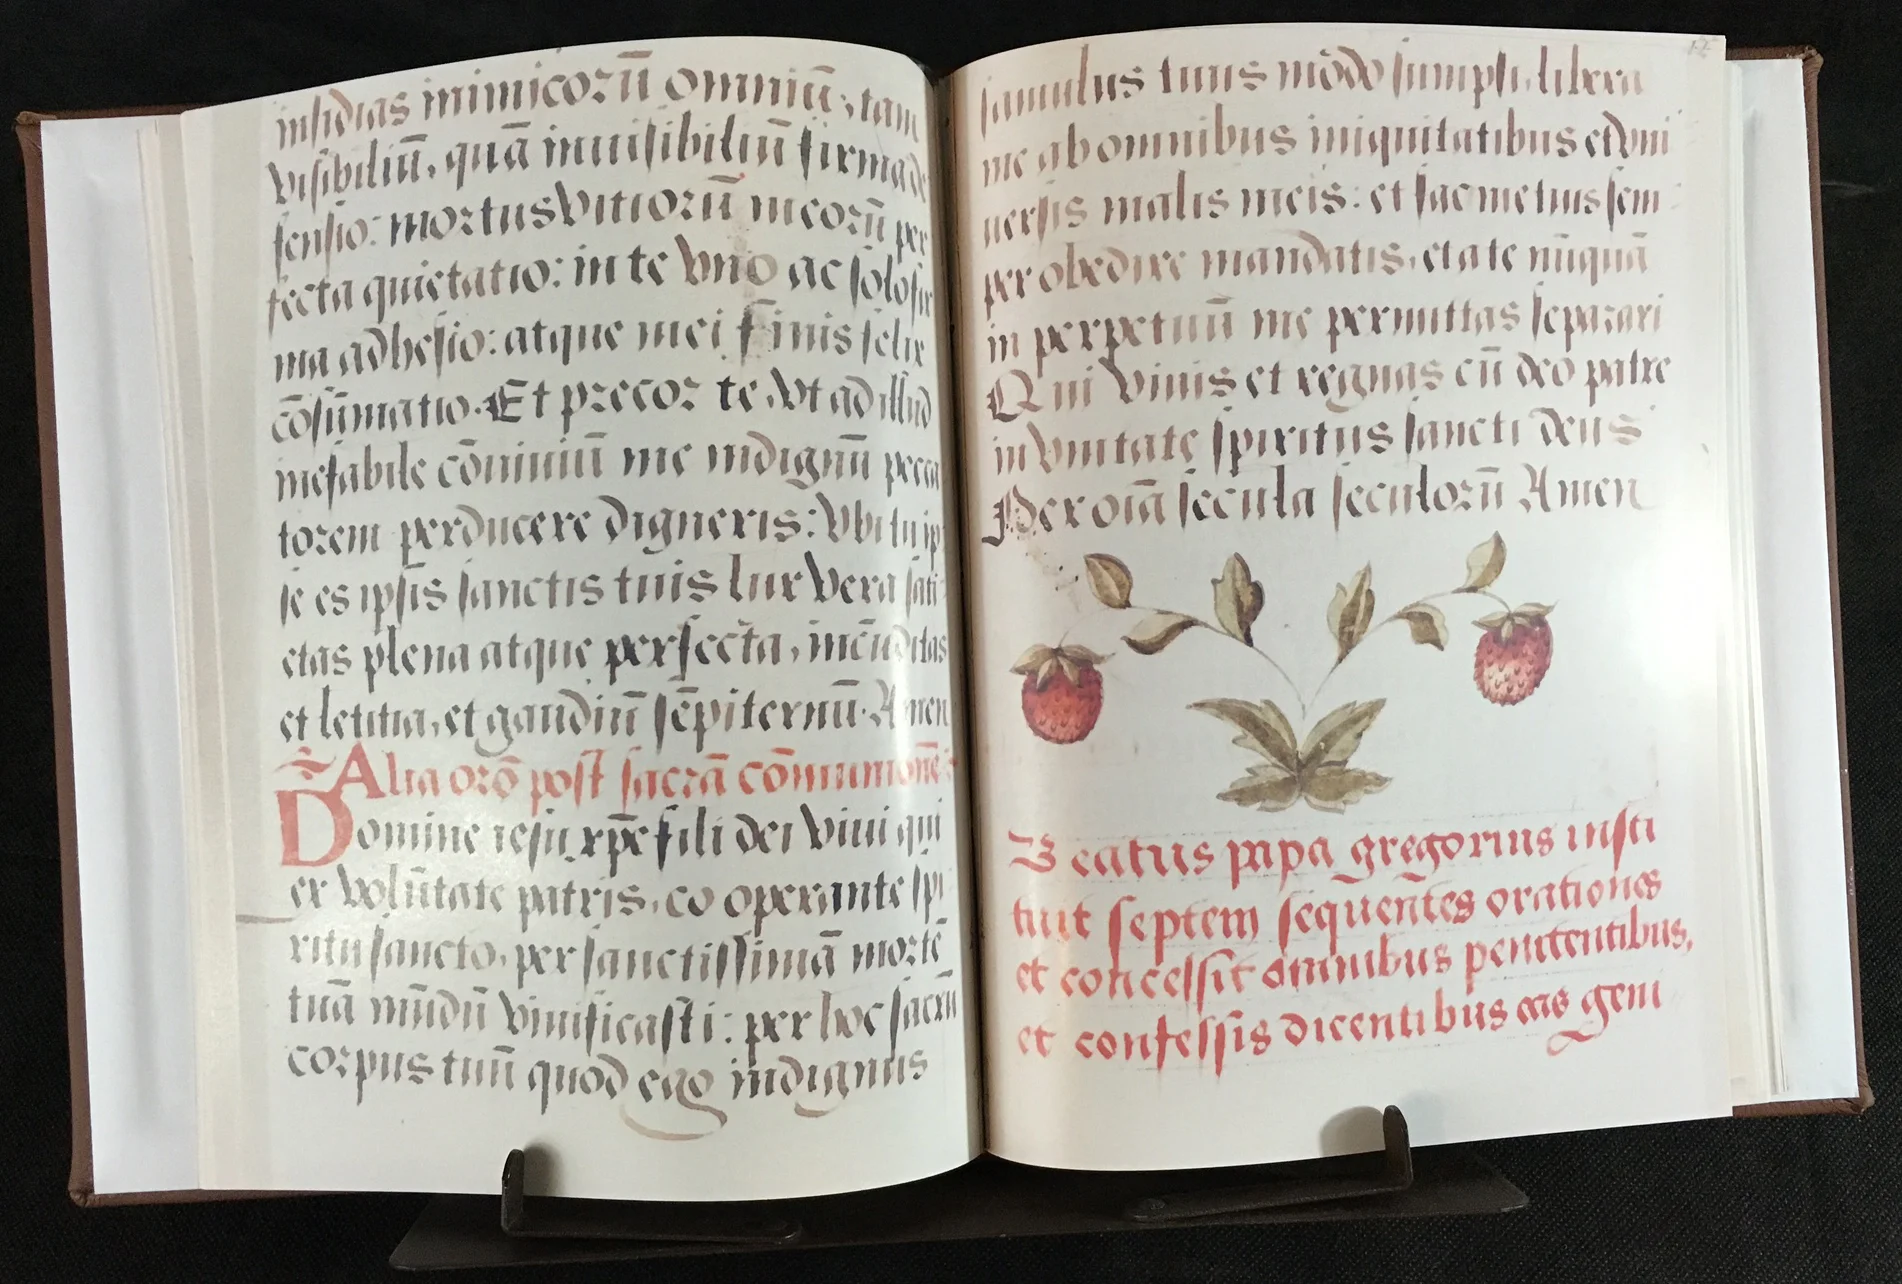 insidias inimicorū omniū, tam
visibiliū, quā inuisibiliū firma de
fensio: mortus vitiorū meorū per
fecta quietatio: in te vno ac solo fir
ma adhesio: atque mei finis felix
cōsūmatio. Et precor te vt ad illud
inefabile cōuiuiū me indignū pecca
torem perducere digneris: vbi tu ip
se es ipsis sanctis tuis lux vera sati
etas plena atque perfecta, incūditas
et letitia, et gaudiū sēpiternū. Amen
Alia orō post sacrā cōmunionē
Domine iesu xpē fili dei viui qui
ex volūtate patris, co operante spi
ritu sancto, per sanctissimā mortē
tuā mūdū viuificasti: per hoc sacrū
corpus tuū quod ego indignus
famulus tuus mōdo sumpsi, libera
me ab omnibus iniquitatibus et vni
uersis malis meis: et fac me tuis sem
per obedire mandatis, et a te nūquā
in perpetuū me permittas separari
Qui viuis et regnas cū deo patre
in vnitate spiritus sancti deus
Per oīa secula seculorū Amen
Beatus papa gregorius insti
tuit septem sequentes orationes
et concessit omnibus penitentibus,
et confessis dicentibus eas geni